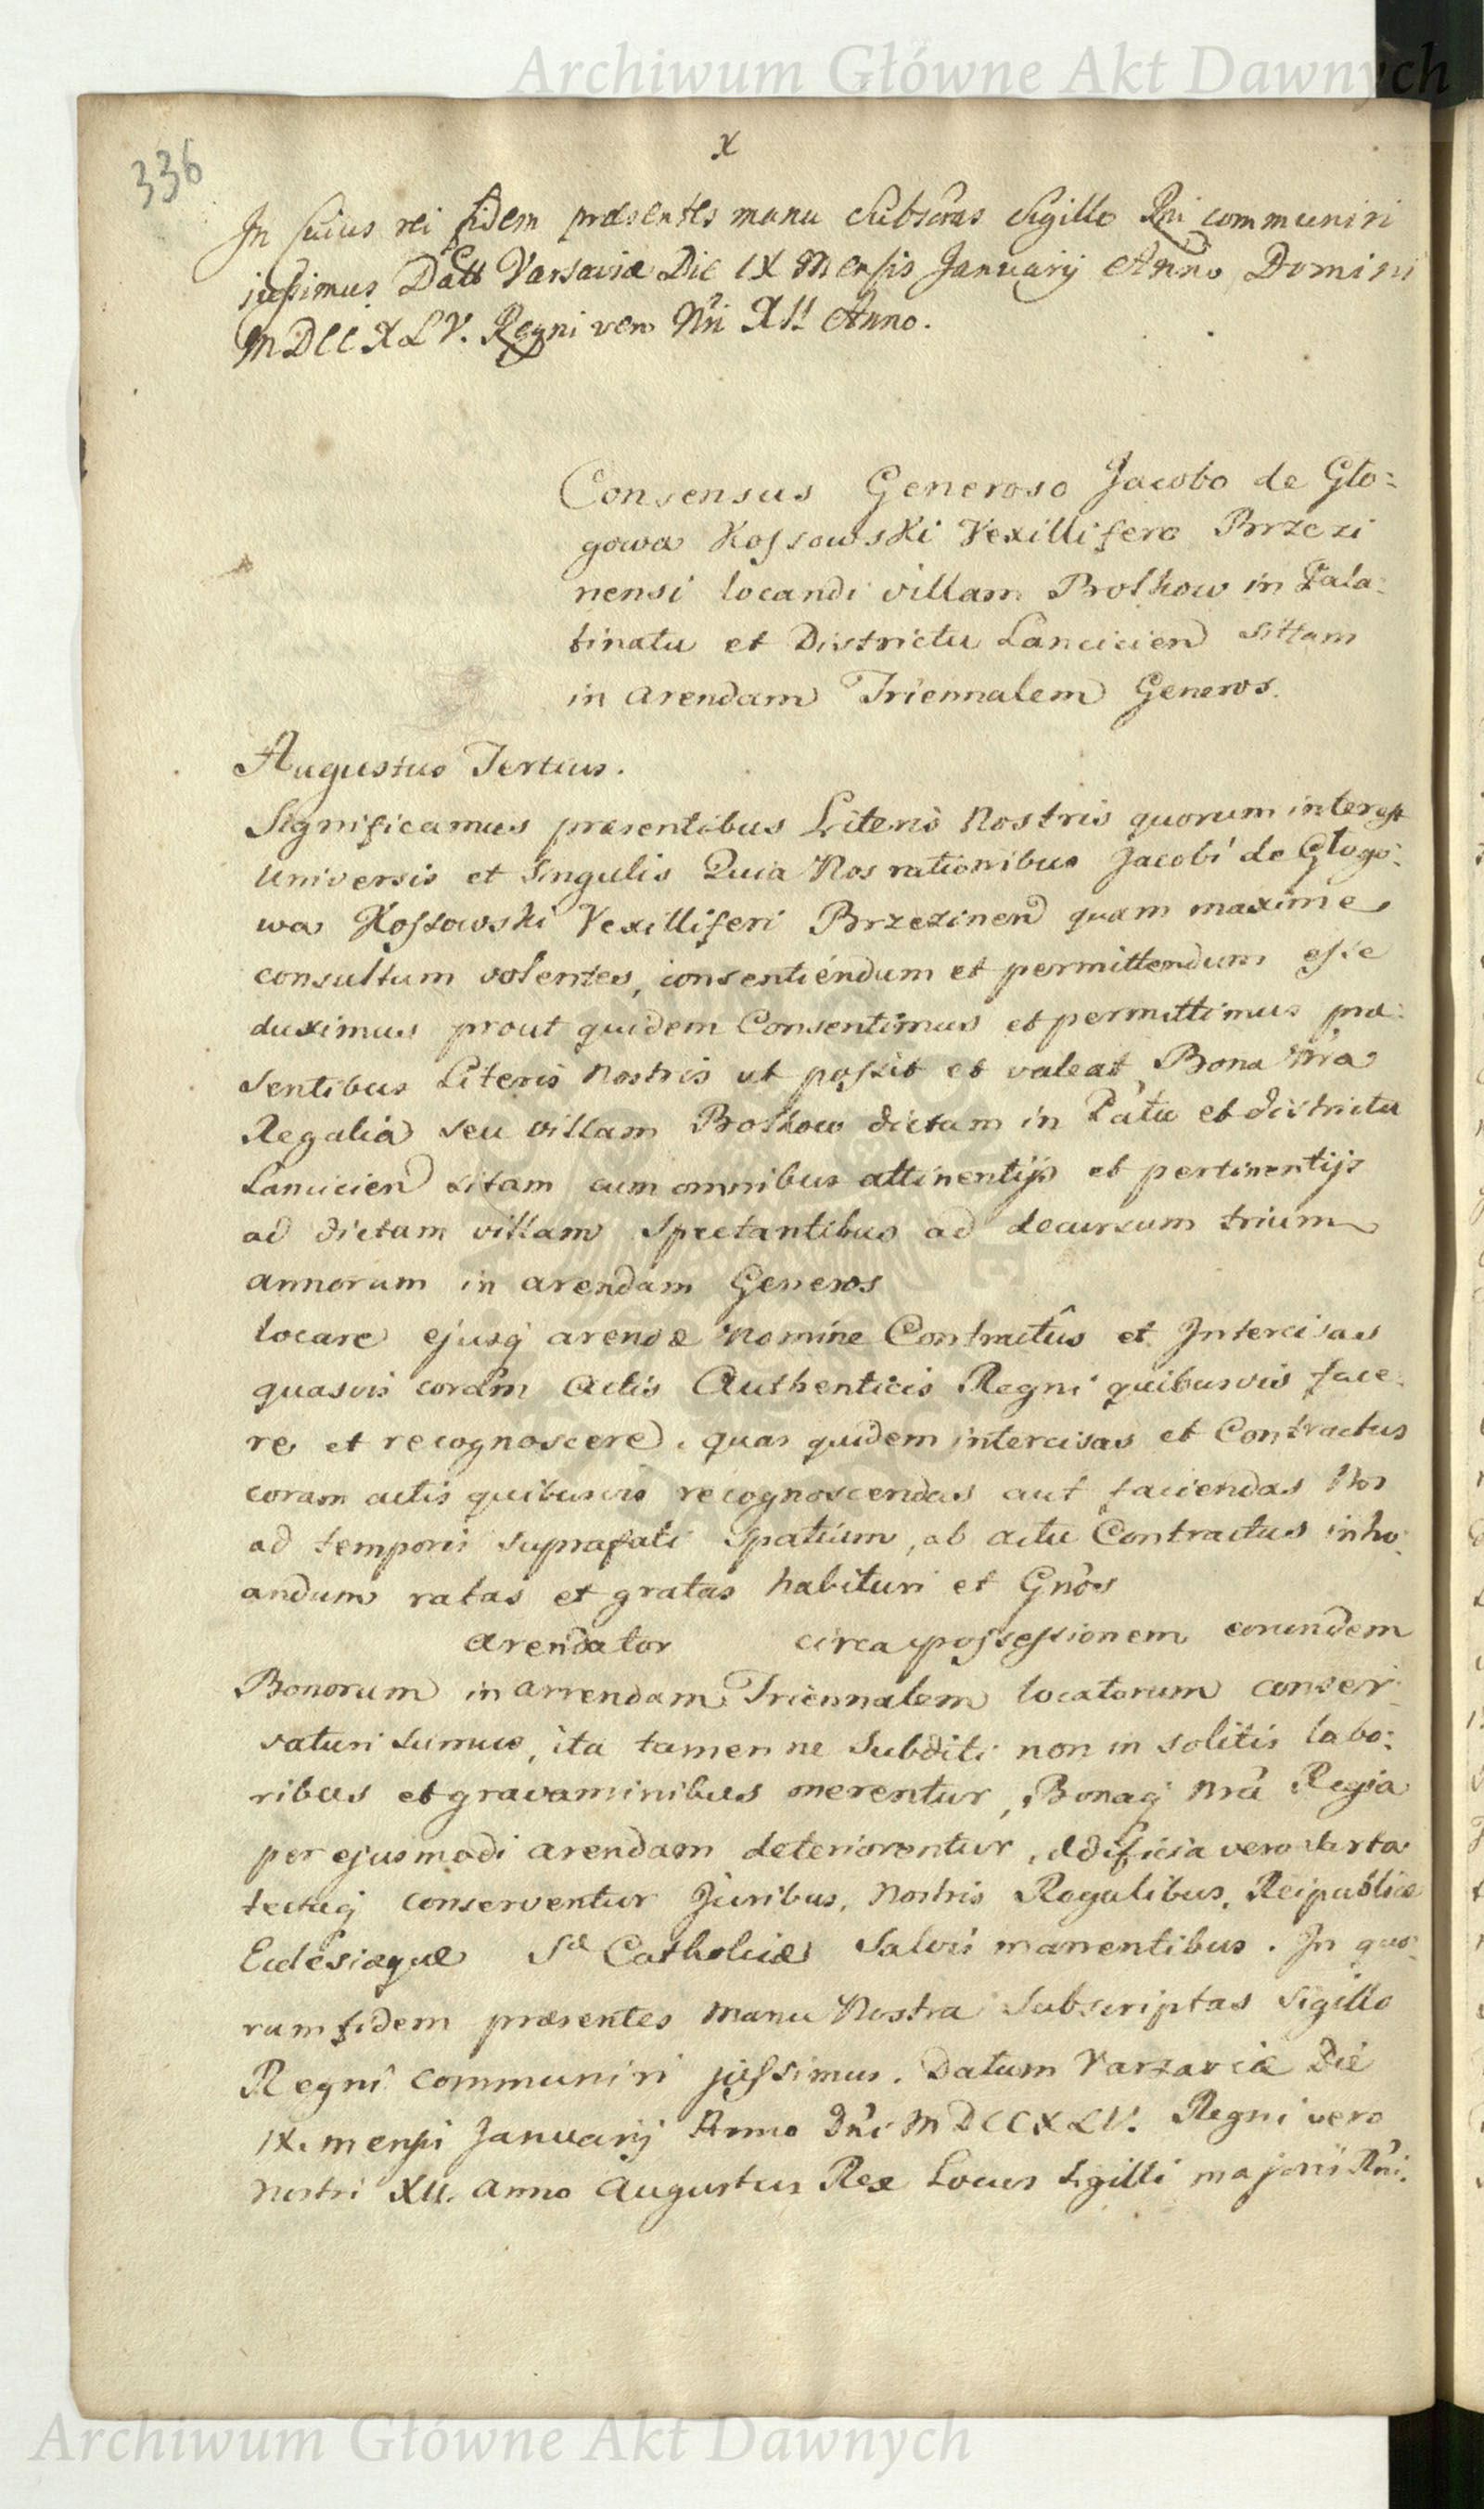 Archiwum Główne Akt Dawnych
336
x
In Cuius rei fidem præsentes manu Subscras Sigillo Rni communiri
jussimus Datt Varsaviæ Die IX Mensis Januarij Anno Domini
MDCCXLV. Regni vero Nri XII Anno.
Consensus Generoso Jacobo de Gło-
gowa Kossowski Vexillifero Brzezi
nensi locandi villam Bolkow in Pala-
tinatu et Districtu Lancicien sittam
in arendam Triennalem Generos.
Augustus Tertius.
Significamus præsentibus Literis Nostris quorum interest
Universis et Singulis Quia Nos rationibus Jacobi de Głogo-
wa Kossowski Vexilliferi Brzezinen quam maxime
consultum volentes, consentiendum et permittendum esse
duximus prout quidem Consentimus et permittimus præ-
sentibus Literis Nostris ut possit et valeat Bona Nra
Regalia seu villam Bolkow dictam in Pattu et districtu
Lancicien sitam cum omnibus attinentijs et pertinentijs
ad dictam villam Spectantibus ad decursum trium
annorum in arendam Generos
locare ejusq arendæ nomine Contractûs et Intercisas
quasvis coram Actis Authenticis Regni quibusvis face-
re et recognoscere. quas quidem intercisas et Contractus
coram actis quibusvis recognoscendas aut faciendas Nos
ad temporis suprafati Spatium, ab actu Contractus inho-
andum ratas et gratas habituri et Gnos
arendator circa possessionem eorundem
Bonorum in arrendam Triennalem locatorum conser-
vaturi sumus, ita tamen ne Subditi non in solitis labo-
ribus et gravaminibus onerentur, Bonaq nra Regia
per ejusmodi arendam deteriorentur, ædificia vero sarta
tectaq conserventur Juribus, Nostris Regalibus, Reipublicæ
Ecclesiæquæ Sæ Catholicæ Salvis manentibus. In quo-
rum fidem præsentes manu Nostra Subscriptas Sigillo
Regni communiri jussimus. Datum Varsaviæ Die
IX. mensis Januarij Anno Dni MDCCXLV. Regni vero
Nostri XII. anno Augustus Rex Locus Sigilli majoris Rni.
Archiwum Główne Akt Dawnych